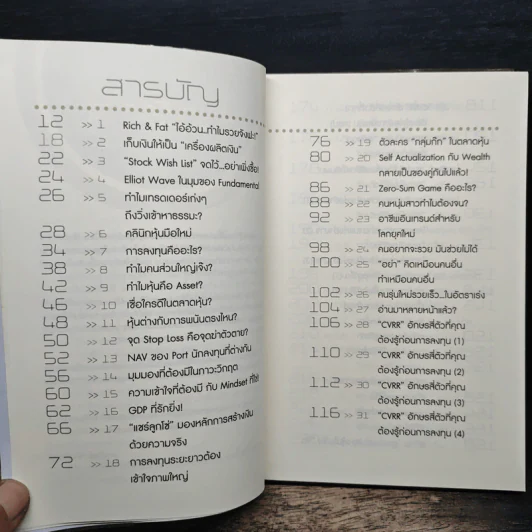 สารบัญ
12 >> 1 Rich & Fat "ไอ้อ้วน...ทำไมรวยจังฟะ!"
18 >> 2 เก็บเงินให้เป็น "เครื่องผลิตเงิน"
22 >> 3 "Stock Wish List" จดไว้...อย่าเพิ่งซื้อ!
24 >> 4 Elliot Wave ในมุมของ Fundamental
26 >> 5 ทำไมเทรดเดอร์เก่งๆ
ถึงวิ่งเข้าหาธรรมะ?
28 >> 6 คลินิกหุ้นมือใหม่
34 >> 7 การลงทุนคืออะไร?
38 >> 8 ทำไมคนส่วนใหญ่เจ๊ง?
42 >> 9 ทำไมหุ้นคือ Asset?
46 >> 10 เชื่อใครดีในตลาดหุ้น?
48 >> 11 หุ้นต่างกับการพนันตรงไหน?
50 >> 12 จุด Stop Loss คือจุดฆ่าตัวตาย?
52 >> 13 NAV ของ Port นักลงทุนที่ต่างกัน
56 >> 14 มุมมองที่ต้องมีในภาวะวิกฤต
60 >> 15 ความเข้าใจที่ต้องมี กับ Mindset ที่ใช้
62 >> 16 GDP ที่รักยิ่ง!
66 >> 17 "แชร์ลูกโซ่" มองหลักการสร้างเงิน
ด้วยความจริง
72 >> 18 การลงทุนระยะยาวต้อง
เข้าใจภาพใหญ่
76 >> 19 ตัวละคร "กลุ่มกึ๊ก" ในตลาดหุ้น
80 >> 20 Self Actualization กับ Wealth
กลายเป็นของคู่กันไปแล้ว!
86 >> 21 Zero-Sum Game คืออะไร?
88 >> 22 คนหนุ่มสาวทำไมต้องจน?
92 >> 23 อาชีพอินเทรนด์สำหรับ
โลกยุคใหม่
98 >> 24 คนอยากจะรวย มันช่วยไม่ได้
100 >> 25 "อย่า" คิดเหมือนคนอื่น
ทำเหมือนคนอื่น
102 >> 26 คนรุ่นใหม่รวยเร็ว...ในอัตราเร่ง
104 >> 27 อ่านมาหลายหน้าแล้ว?
106 >> 28 "CVRR" อักษรสี่ตัวที่คุณ
ต้องรู้ก่อนการลงทุน (1)
110 >> 29 "CVRR" อักษรสี่ตัวที่คุณ
ต้องรู้ก่อนการลงทุน (2)
112 >> 30 "CVRR" อักษรสี่ตัวที่คุณ
ต้องรู้ก่อนการลงทุน (3)
116 >> 31 "CVRR" อักษรสี่ตัวที่คุณ
ต้องรู้ก่อนการลงทุน (4)